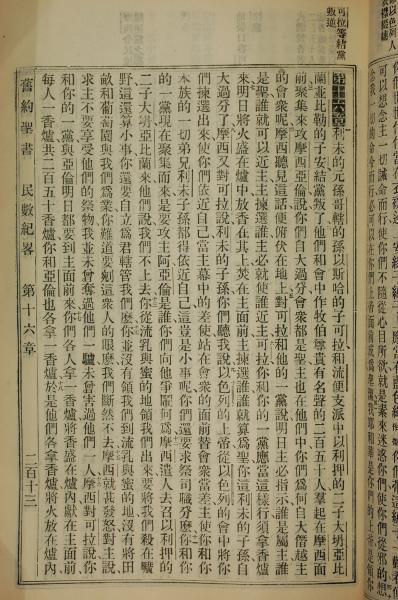 可拉等結黨
叛逆
第十六章 利未的元孫哥轄的孫以斯哈的子可拉和流便支派中以利押的二子大坍亞比
蘭並比勒的子安結黨叛了他們和會中作牧伯尊貴有名聲的二百五十人羣起在摩西面
前聚集來攻摩西亞倫說你們自大過分會衆都是聖主也在他們中你們爲何自大僭越主
的會衆呢摩西聽見這話便俯伏在地上對可拉和他的一黨說明日主必指示誰是屬主誰
是聖誰就可以近主主揀選誰必就使誰近主可拉你和你的一黨應當這樣行須拿香爐
來明日將火盛在爐中放香在其上焚在主面前主揀選誰誰就算爲聖你這利未的子孫自
大過分了摩西又對可拉說利未的子孫你們聽我說以色列的上帝從以色列的會中將你
們揀選出來使你們依近自己當主幕中的差使站在會衆的面前替會衆當差主使你和你
本族的一切弟兄利未子孫都得依近自己這豈是小事呢你們還要求祭司職分麼你和你
的一黨現在聚集而來是要攻主阿亞倫是誰你們向他爭鬧何爲摩西遣人去召以利押的
二子大坍亞比蘭來他們說我們不上去你從流乳與蜜的地領我們出來要將我們殺在曠
野這還算小事你還要自立爲君轄管我們麼你並沒有領我們到流乳與蜜的地沒有將田
畝和葡萄園與我們爲業你難道要剜這衆人的眼麼我們斷然不去摩西就甚發怒對主說
求主不要享受他們的祭物我並未曾奪過他們一驢未曾害過他們一人摩西對可拉說你
和你的一黨與亞倫明日都要到主面前來你們各人拿一香爐將香盛在爐內獻在主面前
每人一香爐共二百五十香爐你和亞倫也各拿一香爐於是他們各拿香爐將火放在爐內
舊約聖書 民數紀畧 第十六章 二百十三